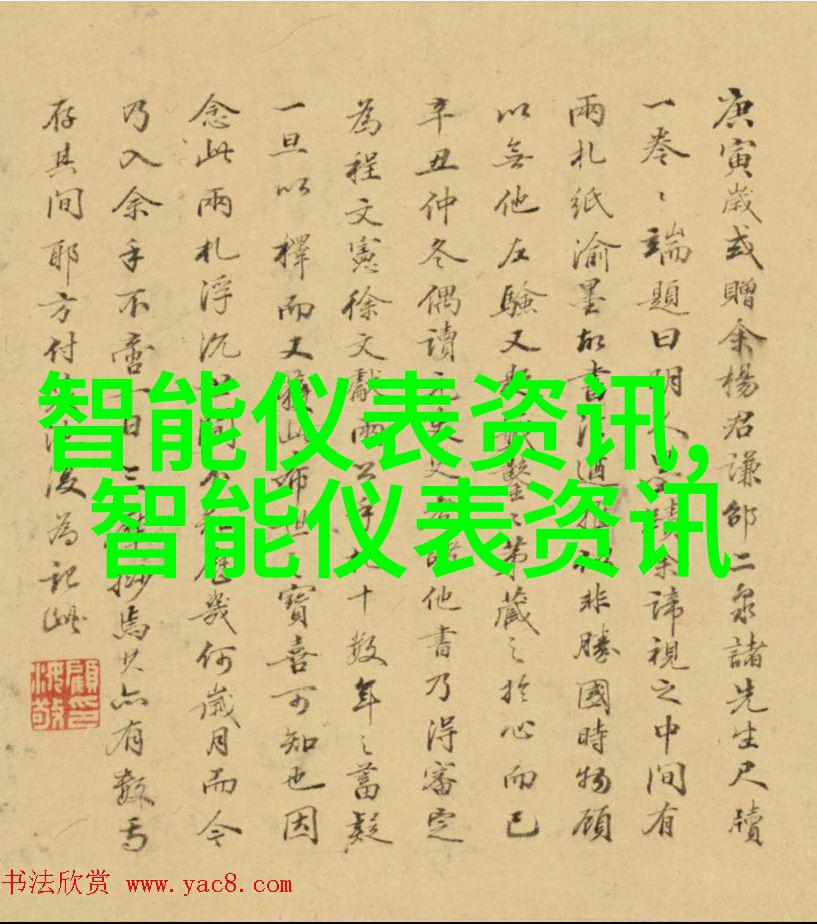 庚寅歲或贈余楊君謙邵二泉諸先生尺牘
一卷〻端題曰明人
余諦視之中間有
兩札紙渝墨
書
非勝國時物顧
以無他左驗又
第藏之於心而已
辛丑仲冬偶讀元史
他書乃得審定
為程文憲徐文獻兩公
十數年之蓄疑
一旦以釋而又
寶喜可知也因
念此兩札浮沉
幾何歲月而今
乃入余手不
日
焉其亦有數焉
存其間耶方付
後為記此
智能仪表资讯,
智能仪表资讯
书法欣赏 www.yac8.com